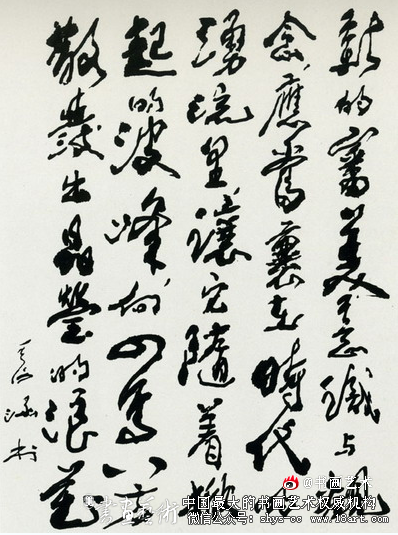 新的審美意識与觀
念，應當裹在時代的
湧流里，讓它隨着
起的波峰向四馬八方
散發出晶瑩的浪花
@书画艺术
書画藝術
中国最大的书画艺术权威机构
微信公众号：shys-cc www.18art.com